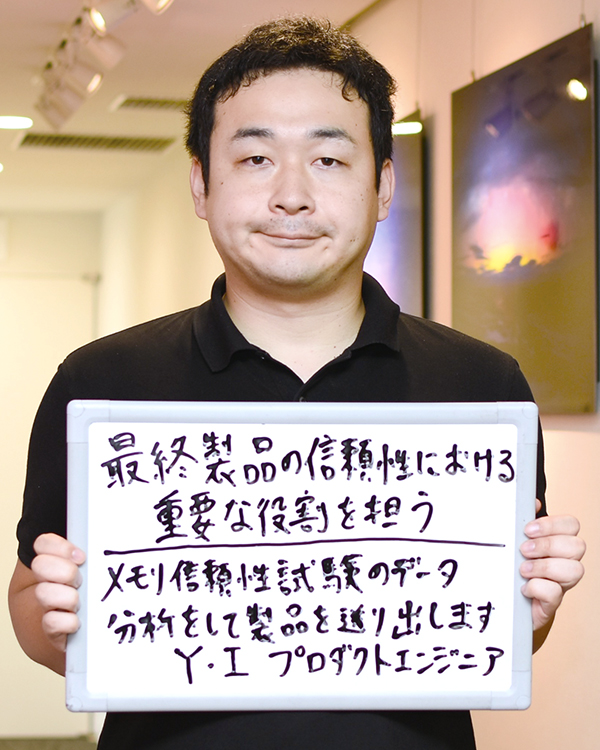 最終製品の信頼性における
重要な役割を担う
メモリ信頼性試験のデータ
分析をして製品を送り出します
Y・I プロダクトエンジニア